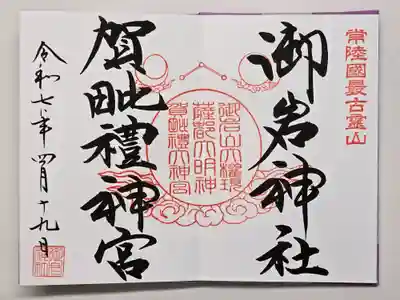 常陸國最古霊山
御岩神社
御岩山大権現
薩都大明神
賀毗禮大神宮
賀毗禮神宮
令和七年四月十九日